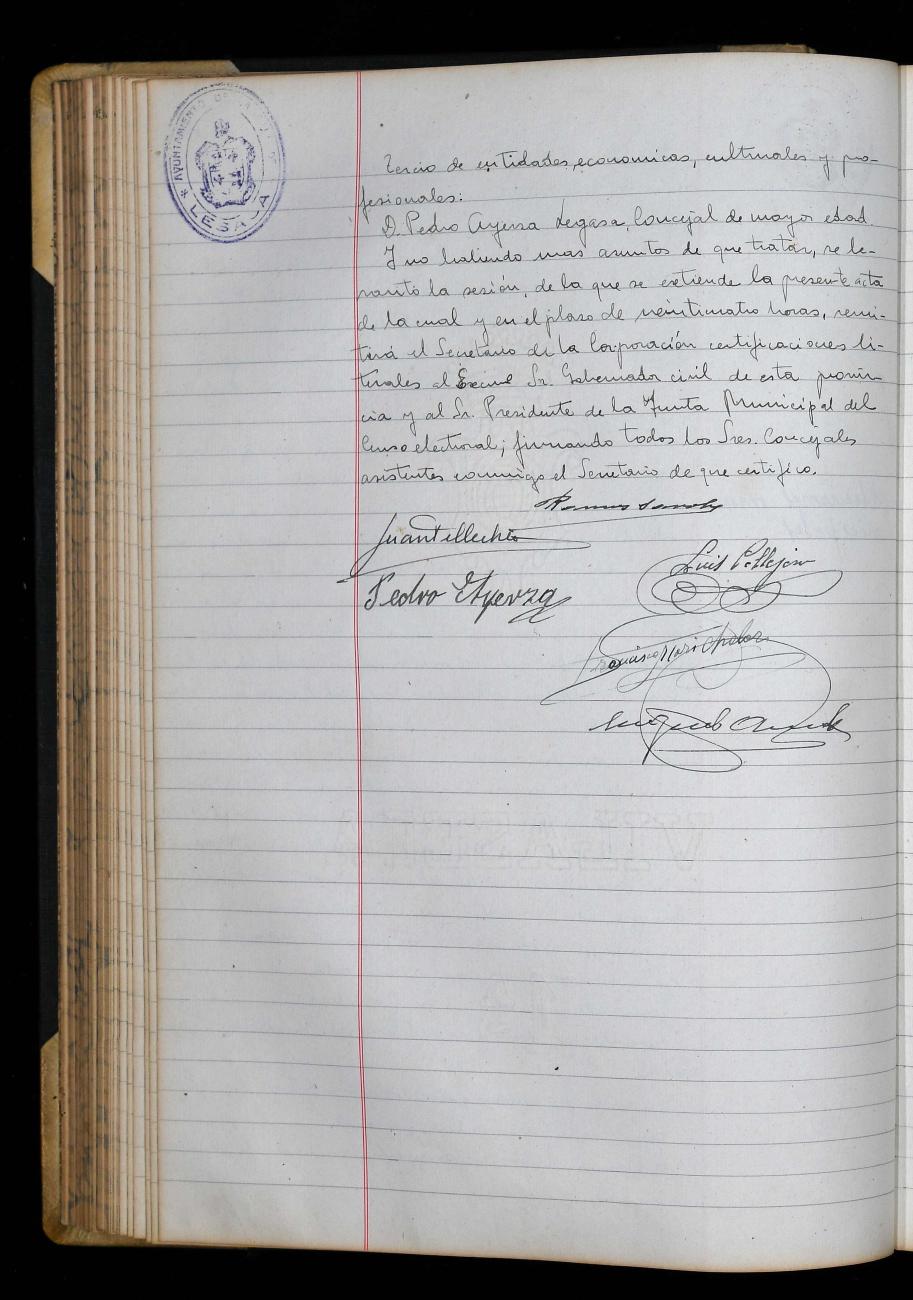 AYUNTAMIENTO DE LA
* LESACA
Tercio de entidades, economicas, culturales y pro-
fesionales:
D. Pedro Ayerza Legasa, Concejal de mayor edad.
Y no habiendo mas asuntos de que tratar, se le-
vantó la sesión, de la que se extiende la presente acta
de la cual y en el plazo de veinticuatro horas, remi-
tirá el Secretario de la Corporación certificaciones li-
terales al Excmo Sr. Gobernador civil de esta provin-
cia y al Sr. Presidente de la Junta Municipal del
Censo electoral; firmando todos los Sres. Concejales
asistentes conmigo el Secretario de que certifico.
Juan Tellechea
Luis
Pedro Ayerza
Francisco
Miguel